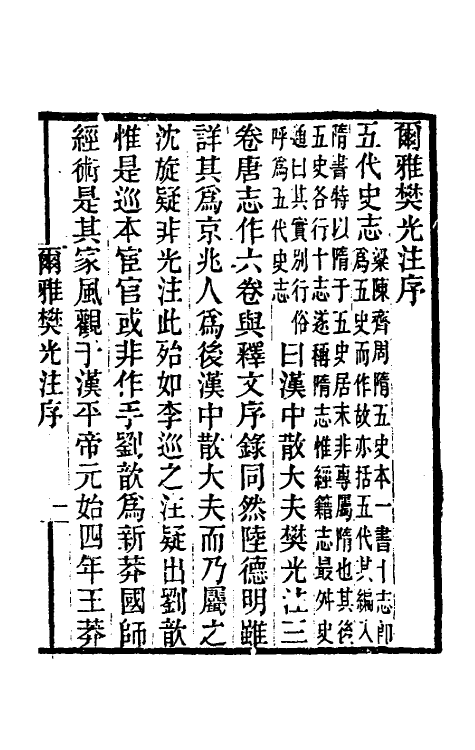 爾雅樊光注序
五代史志
梁陳齊周隋五史本一書十志卽
爲五史而作故亦括五代其編入
隋書特以隋于五史居末非專屬隋也其後
五史各行十志遂稱隋志惟經籍志最舛史
通曰其實別行俗
呼爲五代史志
曰漢中散大夫樊光注三
卷唐志作六卷與釋文序錄同然陸德明雖
詳其爲京兆人爲後漢中散大夫而乃屬之
沈旋疑非光注此殆如李巡之注疑出劉歆
惟是巡本宦官或非作手劉歆爲新莽國師
經術是其家風觀于漢平帝元始四年王莽
爾雅樊光注序
一